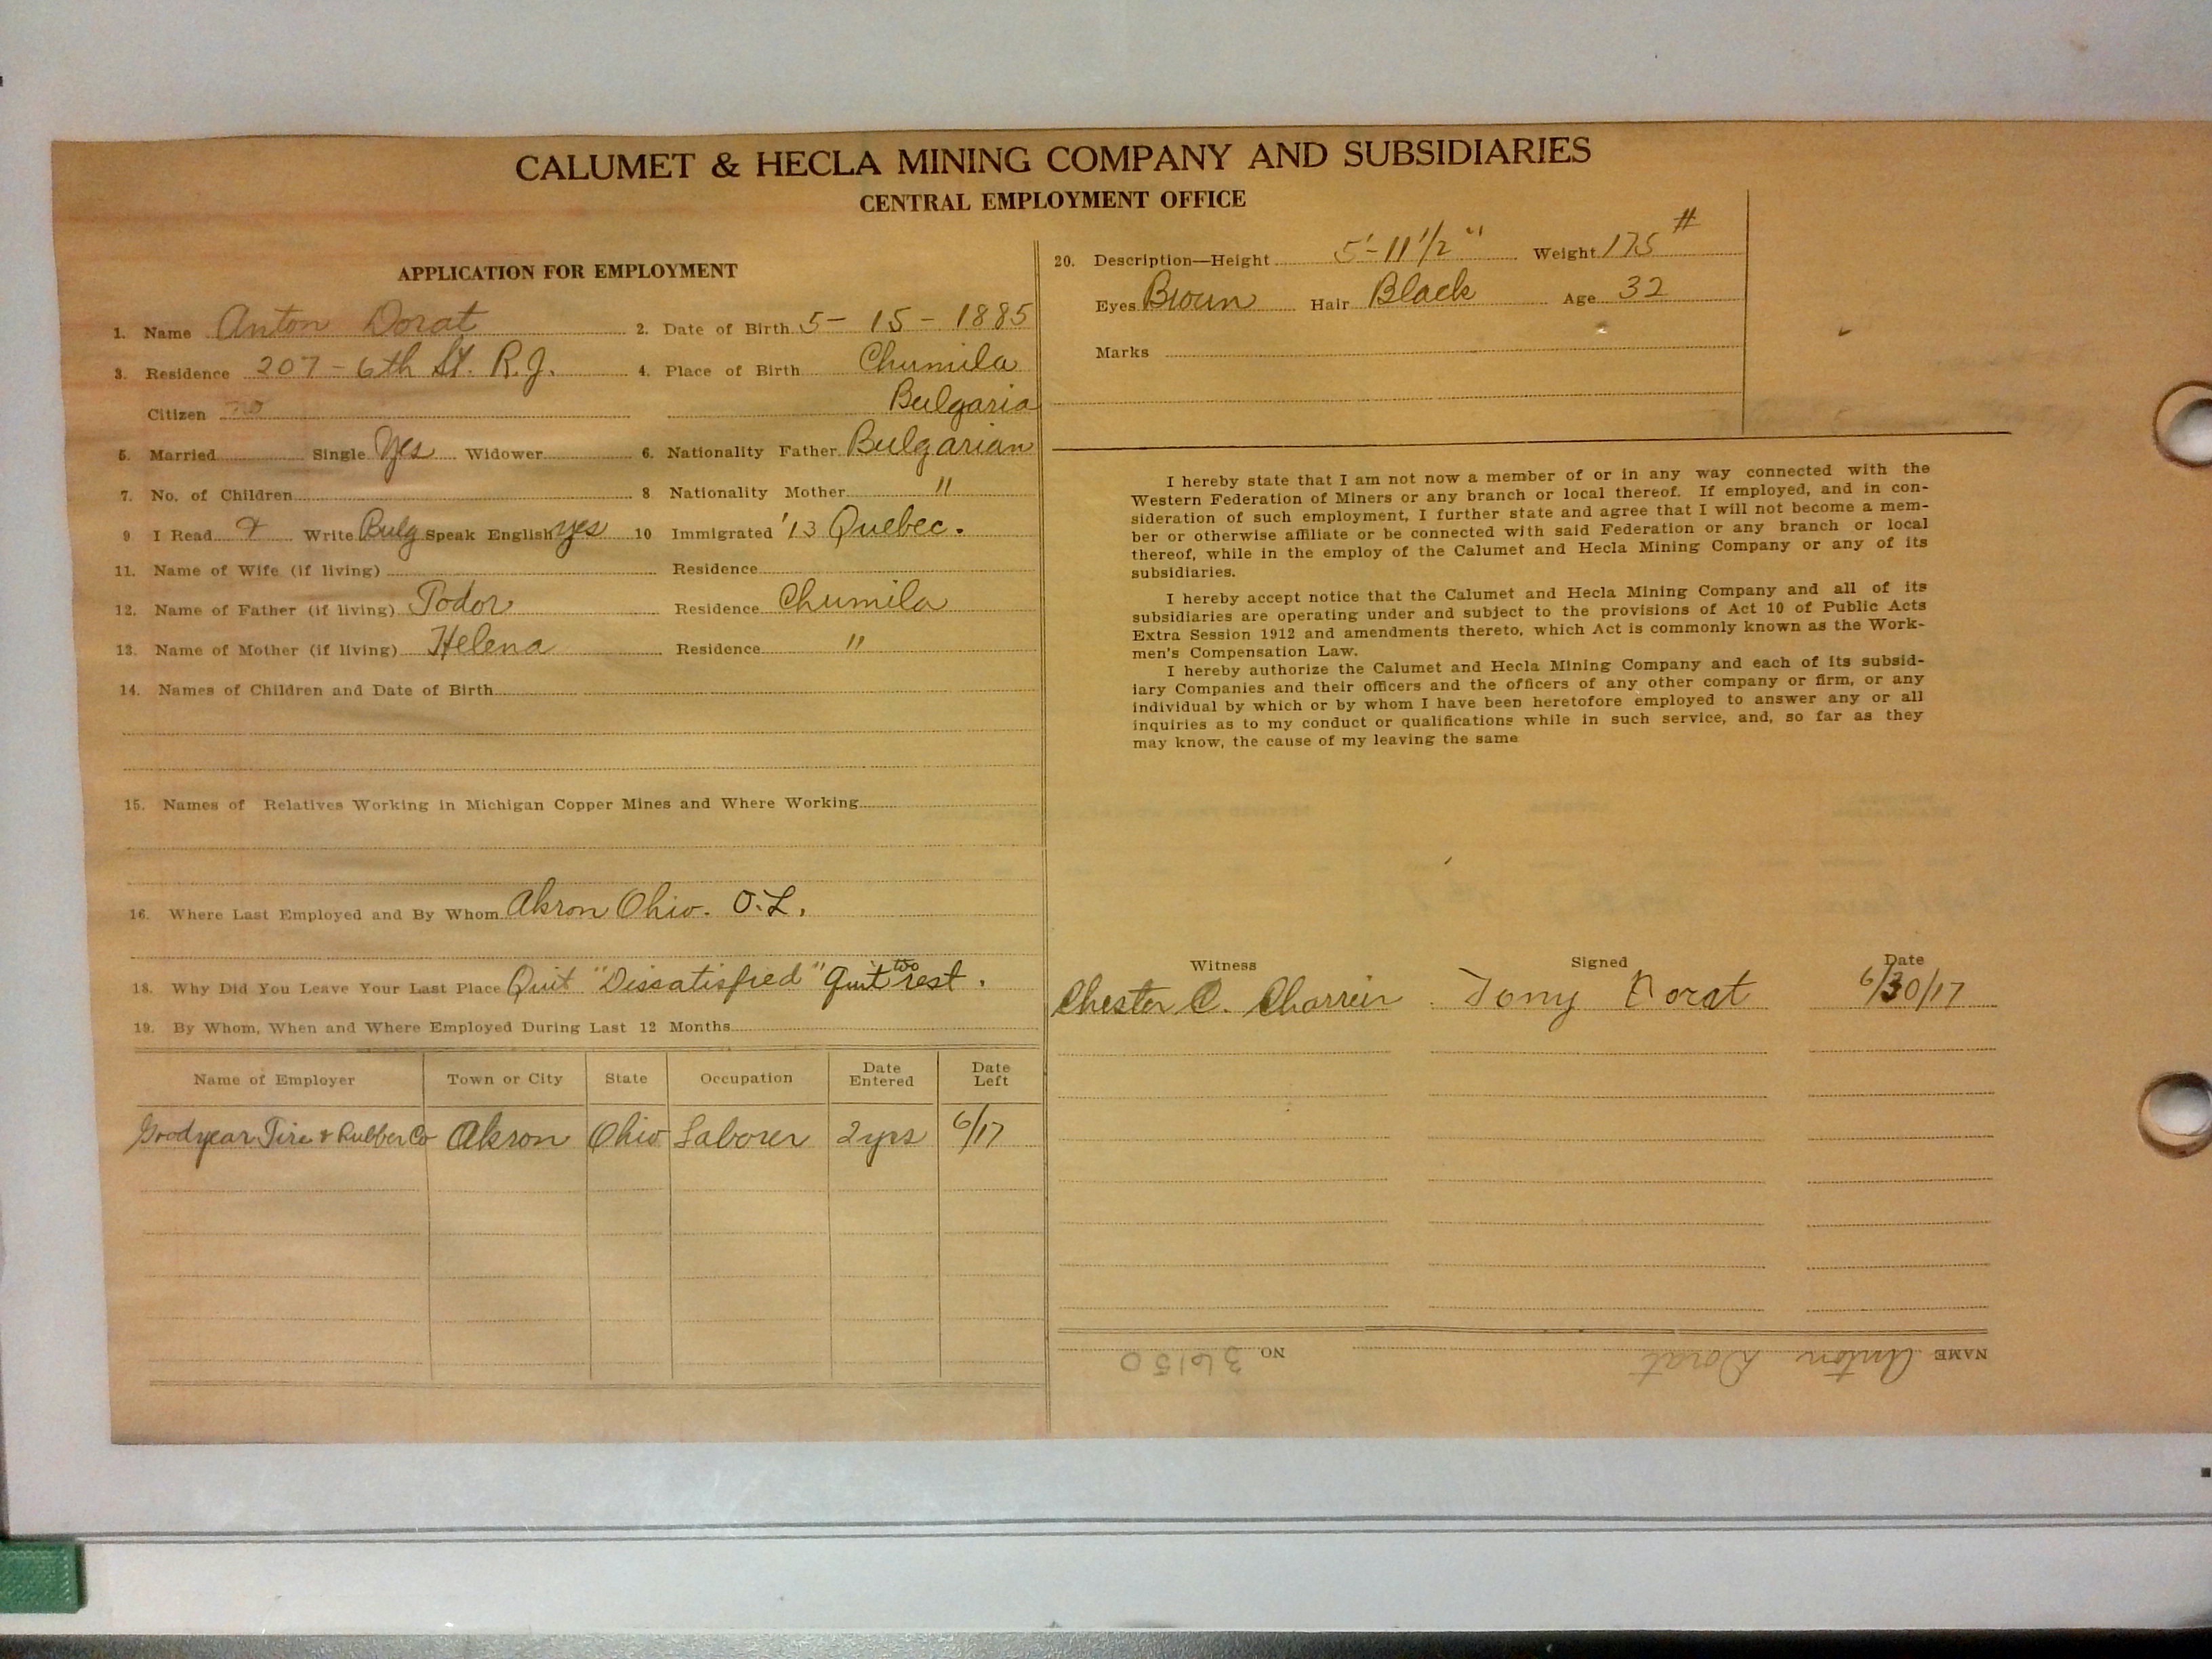 CALUMET & HECLA MINING COMPANY AND SUBSIDIARIES
CENTRAL EMPLOYMENT OFFICE
APPLICATION FOR EMPLOYMENT
1. Name Anton Dorat 2. Date of Birth 5 - 15 - 1885
3. Residence 207 - 6th St. R.J. 4. Place of Birth Chumila
Citizen no Bulgaria
5. Married Single Yes Widower 6. Nationality Father Bulgarian
7. No. of Children 8 Nationality Mother "
9 I Read & Write Bulg Speak English yes 10 Immigrated '13 Quebec.
11. Name of Wife (if living) Residence
12. Name of Father (if living) Todor Residence Chumila
13. Name of Mother (if living) Helena Residence "
14. Names of Children and Date of Birth
15. Names of Relatives Working in Michigan Copper Mines and Where Working
16. Where Last Employed and By Whom Akron Ohio. O.L.
18. Why Did You Leave Your Last Place Quit "Dissatisfied" Quit two rest.
19. By Whom, When and Where Employed During Last 12 Months
Name of Employer Town or City State Occupation Date Entered Date Left
Goodyear Tire & Rubber Co Akron Ohio Laborer 2 yrs 6/17
20. Description—Height 5'-11 1/2" Weight 175 #
Eyes Brown Hair Black Age 32
Marks
I hereby state that I am not now a member of or in any way connected with the
Western Federation of Miners or any branch or local thereof. If employed, and in con-
sideration of such employment, I further state and agree that I will not become a mem-
ber or otherwise affiliate or be connected with said Federation or any branch or local
thereof, while in the employ of the Calumet and Hecla Mining Company or any of its
subsidiaries.
I hereby accept notice that the Calumet and Hecla Mining Company and all of its
subsidiaries are operating under and subject to the provisions of Act 10 of Public Acts
Extra Session 1912 and amendments thereto, which Act is commonly known as the Work-
men's Compensation Law.
I hereby authorize the Calumet and Hecla Mining Company and each of its subsid-
iary Companies and their officers and the officers of any other company or firm, or any
individual by which or by whom I have been heretofore employed to answer any or all
inquiries as to my conduct or qualifications while in such service, and, so far as they
may know, the cause of my leaving the same
Witness Signed Date
Chester C. Tony Dorat 6/30/17
NAME Anton Dorat NO. 36150